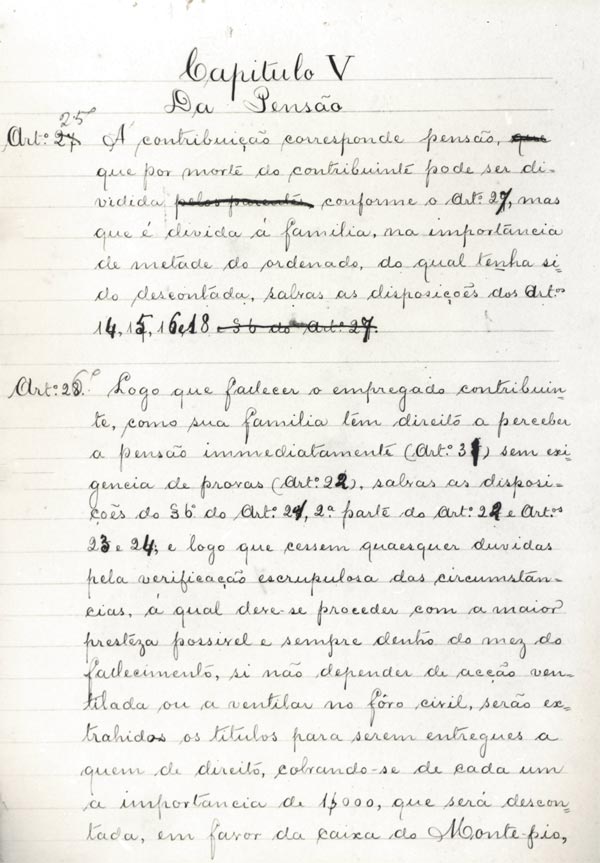 Capitulo V
Da Pensão
25º
Artº. 27 A contribuição corresponde pensão, que
que por morte do contribuinte pode ser di-
vidida pelos parentes, conforme o Artº. 27, mas
que é divida á familia, na importância
de metade do ordenado, do qual tenha si-
do descontada, salvas as disposições dos Artos
14, 15, 16 e 18 § 6 do Artº. 27.
Artº. 26º. Logo que fallecer o empregado contribuin-
te, como sua familia têm direito a perceber
a pensão immediatamente (Artº. 31) sem exi-
gencia de provas (Artº. 22), salvas as disposi-
ções do § 6º do Artº. 21, 2ª parte do Artº. 22 e Artos
23 e 24; e logo que cessem quaesquer duvidas
pela verificação escrupulosa das circumstân-
cias, á qual deve-se proceder com a maior
presteza possivel e sempre dentro do mez do
fallecimento, si não depender de acção ven-
tilada ou a ventilar no fôro civil, serão ex-
trahidos os titulos para serem entregues a
quem de direito, cobrando-se de cada um
a importancia de 1$000, que será descon-
tada, em favor da caixa do Monte-pio,